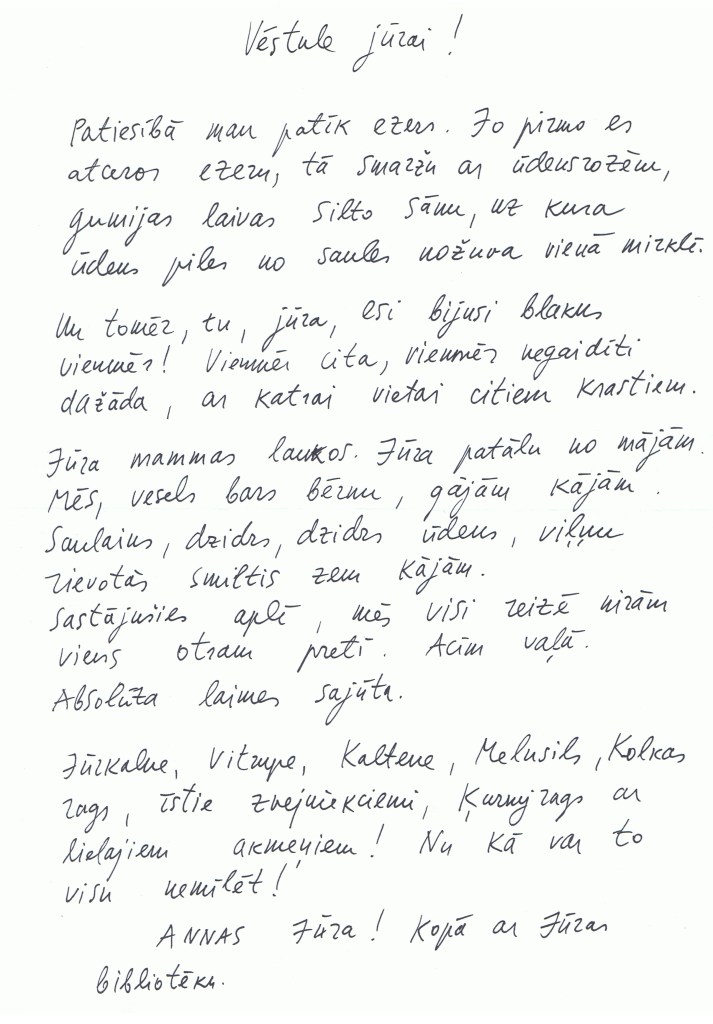 Vēstule jūrai!
Patiesībā man patīk ezers. Jo pirmo es
atceros ezeru, tā smaržu ar ūdensrozēm,
gumijas laivas silto sānu, uz kura
ūdens piles no saules nožuva vienā mirklī.
Un tomēr, tu, jūra, esi bijusi blakus
vienmēr! Vienmēr cita, vienmēr negaidīti
dažāda, ar katrai vietai citiem krastiem.
Jūra mammas laukos. Jūra patālu no mājām.
Mēs, vesels bars bērnu, gājām kājām.
Saulains, dzidrs, dzidrs ūdens, viļņu
rievotās smiltis zem kājām.
Sastājušies aplī, mēs visi reizē nirām
viens otram pretī. Acīm vaļā.
Absolūta laimes sajūta.
Jūrkalne, Vitrupe, Kaltene, Melnsils, Kolkas
rags, īstie zvejniekciemi, Ķurmjrags ar
lielajiem akmeņiem! Nu kā var to
visu nemīlēt!
ANNAS Jūra! Kopā ar Jūras
bibliotēku.